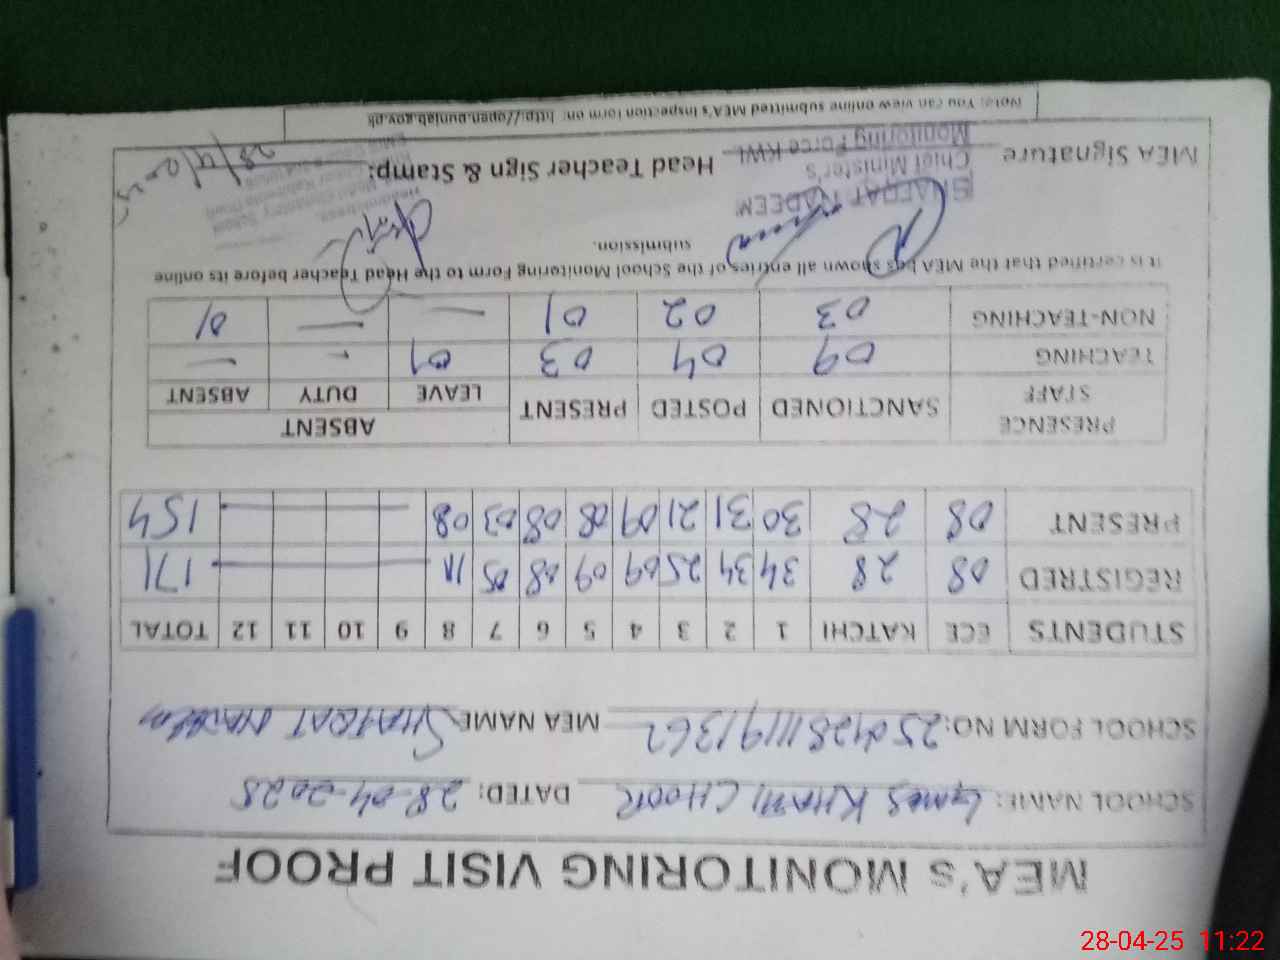 MEA's MONITORING VISIT PROOF
SCHOOL NAME: GMES KHAI, CHOOR DATED: 28-04-2025
SCHOOL FORM NO: 250428111191362 MEA NAME SHAFQAT NADEEM
STUDENTS ECE KATCHI 1 2 3 4 5 6 7 8 9 10 11 12 TOTAL
REGISTRED 08 28 34 34 25 09 09 08 05 11 171
PRESENT 08 28 30 31 21 09 08 08 03 08 154
PRESENCE STAFF SANCTIONED POSTED PRESENT ABSENT
LEAVE DUTY ABSENT
TEACHING 09 04 03 01 - -
NON-TEACHING 03 02 01 — — 01
It is certified that the MEA has shown all entries of the School Monitoring Form to the Head Teacher before its online
submission.
SHAFQAT NADEEM
Chief Minister's
Monitoring Force KWL
MEA Signature Head Teacher Sign & Stamp:
28/4/2025
Note: You can view online submitted MEA's inspection form on: http://open.punjab.gov.pk
28-04-25 11:22